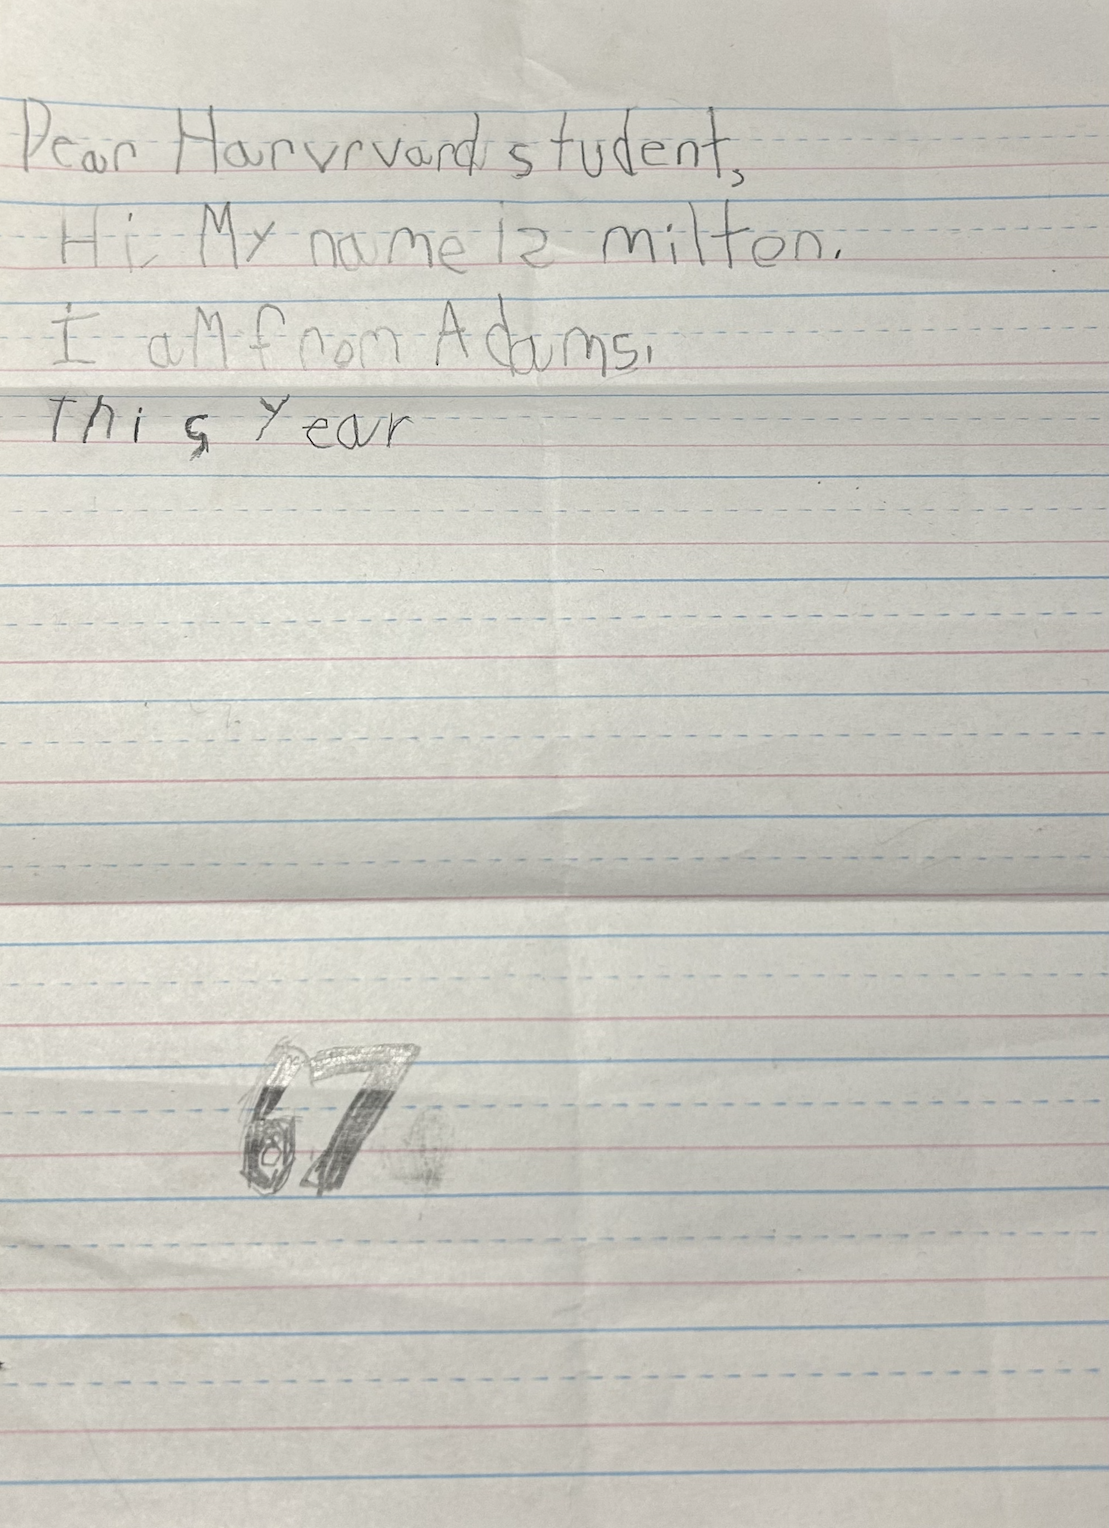 Dear Harvrvard student,
Hi My name iz milton.
I aM from Adams.
This Year
67